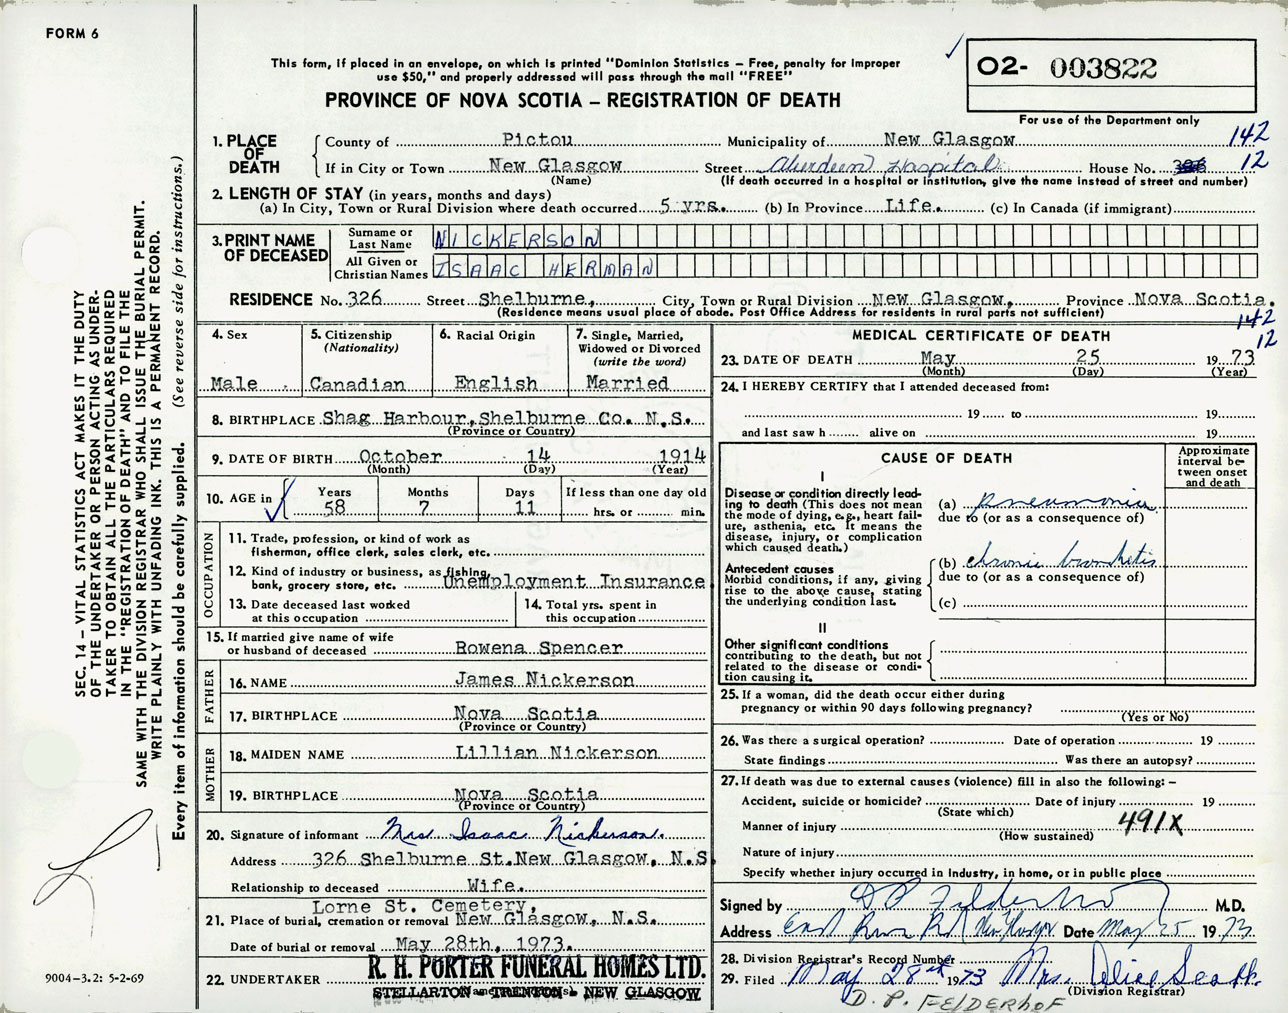 FORM 6
This form, if placed in an envelope, on which is printed "Dominion Statistics – Free, penalty for improper
use $50," and properly addressed will pass through the mail "FREE"
PROVINCE OF NOVA SCOTIA – REGISTRATION OF DEATH
O2- 003822
For use of the Department only
1. PLACE OF DEATH County of Pictou Municipality of New Glasgow 142
If in City or Town New Glasgow Street Aberdeen Hospital House No. 12
(Name) (If death occurred in a hospital or institution, give the name instead of street and number)
2. LENGTH OF STAY (in years, months and days)
(a) In City, Town or Rural Division where death occurred 5 yrs. (b) In Province Life. (c) In Canada (if immigrant)
3. PRINT NAME OF DECEASED
Surname or Last Name NICKERSON
All Given or Christian Names ISAAC HERMAN
RESIDENCE No. 326 Street Shelburne, City, Town or Rural Division New Glasgow, Province Nova Scotia.
(Residence means usual place of abode. Post Office Address for residents in rural parts not sufficient)
142
12
4. Sex Male
5. Citizenship (Nationality) Canadian
6. Racial Origin English
7. Single, Married, Widowed or Divorced (write the word) Married
8. BIRTHPLACE Shag Harbour, Shelburne Co. N.S.
(Province or Country)
9. DATE OF BIRTH October 14 1914
(Month) (Day) (Year)
10. AGE in Years 58 Months 7 Days 11 If less than one day old hrs. or min.
OCCUPATION
11. Trade, profession, or kind of work as
fisherman, office clerk, sales clerk, etc.
12. Kind of industry or business, as fishing,
bank, grocery store, etc. Unemployment Insurance
13. Date deceased last worked at this occupation
14. Total yrs. spent in this occupation
15. If married give name of wife
or husband of deceased Rowena Spencer
FATHER
16. NAME James Nickerson
17. BIRTHPLACE Nova Scotia
(Province or Country)
MOTHER
18. MAIDEN NAME Lillian Nickerson
19. BIRTHPLACE Nova Scotia
(Province or Country)
20. Signature of informant Mrs Isaac Nickerson.
Address 326 Shelburne St. New Glasgow, N.S
Relationship to deceased Wife.
Lorne St. Cemetery,
21. Place of burial, cremation or removal New Glasgow, N.S.
Date of burial or removal May 28th, 1973.
22. UNDERTAKER R. H. PORTER FUNERAL HOMES LTD.
STELLARTON - TRENTON - NEW GLASGOW
MEDICAL CERTIFICATE OF DEATH
23. DATE OF DEATH May 25 1973
(Month) (Day) (Year)
24. I HEREBY CERTIFY that I attended deceased from:
19 to 19
and last saw h alive on 19
CAUSE OF DEATH
Approximate interval between onset and death
I
Disease or condition directly lead-
ing to death (This does not mean
the mode of dying, e.g., heart fail-
ure, asthenia, etc. It means the
disease, injury, or complication
which caused death.)
(a) pneumonia
due to (or as a consequence of)
Antecedent causes
Morbid conditions, if any, giving
rise to the above cause, stating
the underlying condition last.
(b) chronic bronchitis
due to (or as a consequence of)
(c)
II
Other significant conditions
contributing to the death, but not
related to the disease or condi-
tion causing it.
25. If a woman, did the death occur either during
pregnancy or within 90 days following pregnancy?
(Yes or No)
26. Was there a surgical operation? Date of operation 19
State findings Was there an autopsy?
27. If death was due to external causes (violence) fill in also the following: –
Accident, suicide or homicide? Date of injury 19
(State which)
Manner of injury 491X
(How sustained)
Nature of injury
Specify whether injury occurred in industry, in home, or in public place
Signed by D P Felderhof M.D.
Address East River Rd New Glasgow Date May 25 1973
28. Division Registrar's Record Number
29. Filed May 28th 1973 Mrs. Alice Scott
(Division Registrar)
D. P. FELDERHOF
SEC. 14 – VITAL STATISTICS ACT MAKES IT THE DUTY
OF THE UNDERTAKER OR PERSON ACTING AS UNDER-
TAKER TO OBTAIN ALL THE PARTICULARS REQUIRED
IN THE "REGISTRATION OF DEATH" AND TO FILE THE
SAME WITH THE DIVISION REGISTRAR WHO SHALL ISSUE THE BURIAL PERMIT.
WRITE PLAINLY WITH UNFADING INK. THIS IS A PERMANENT RECORD.
Every item of information should be carefully supplied. (See reverse side for instructions.)
9004–3.2: 5-2-69